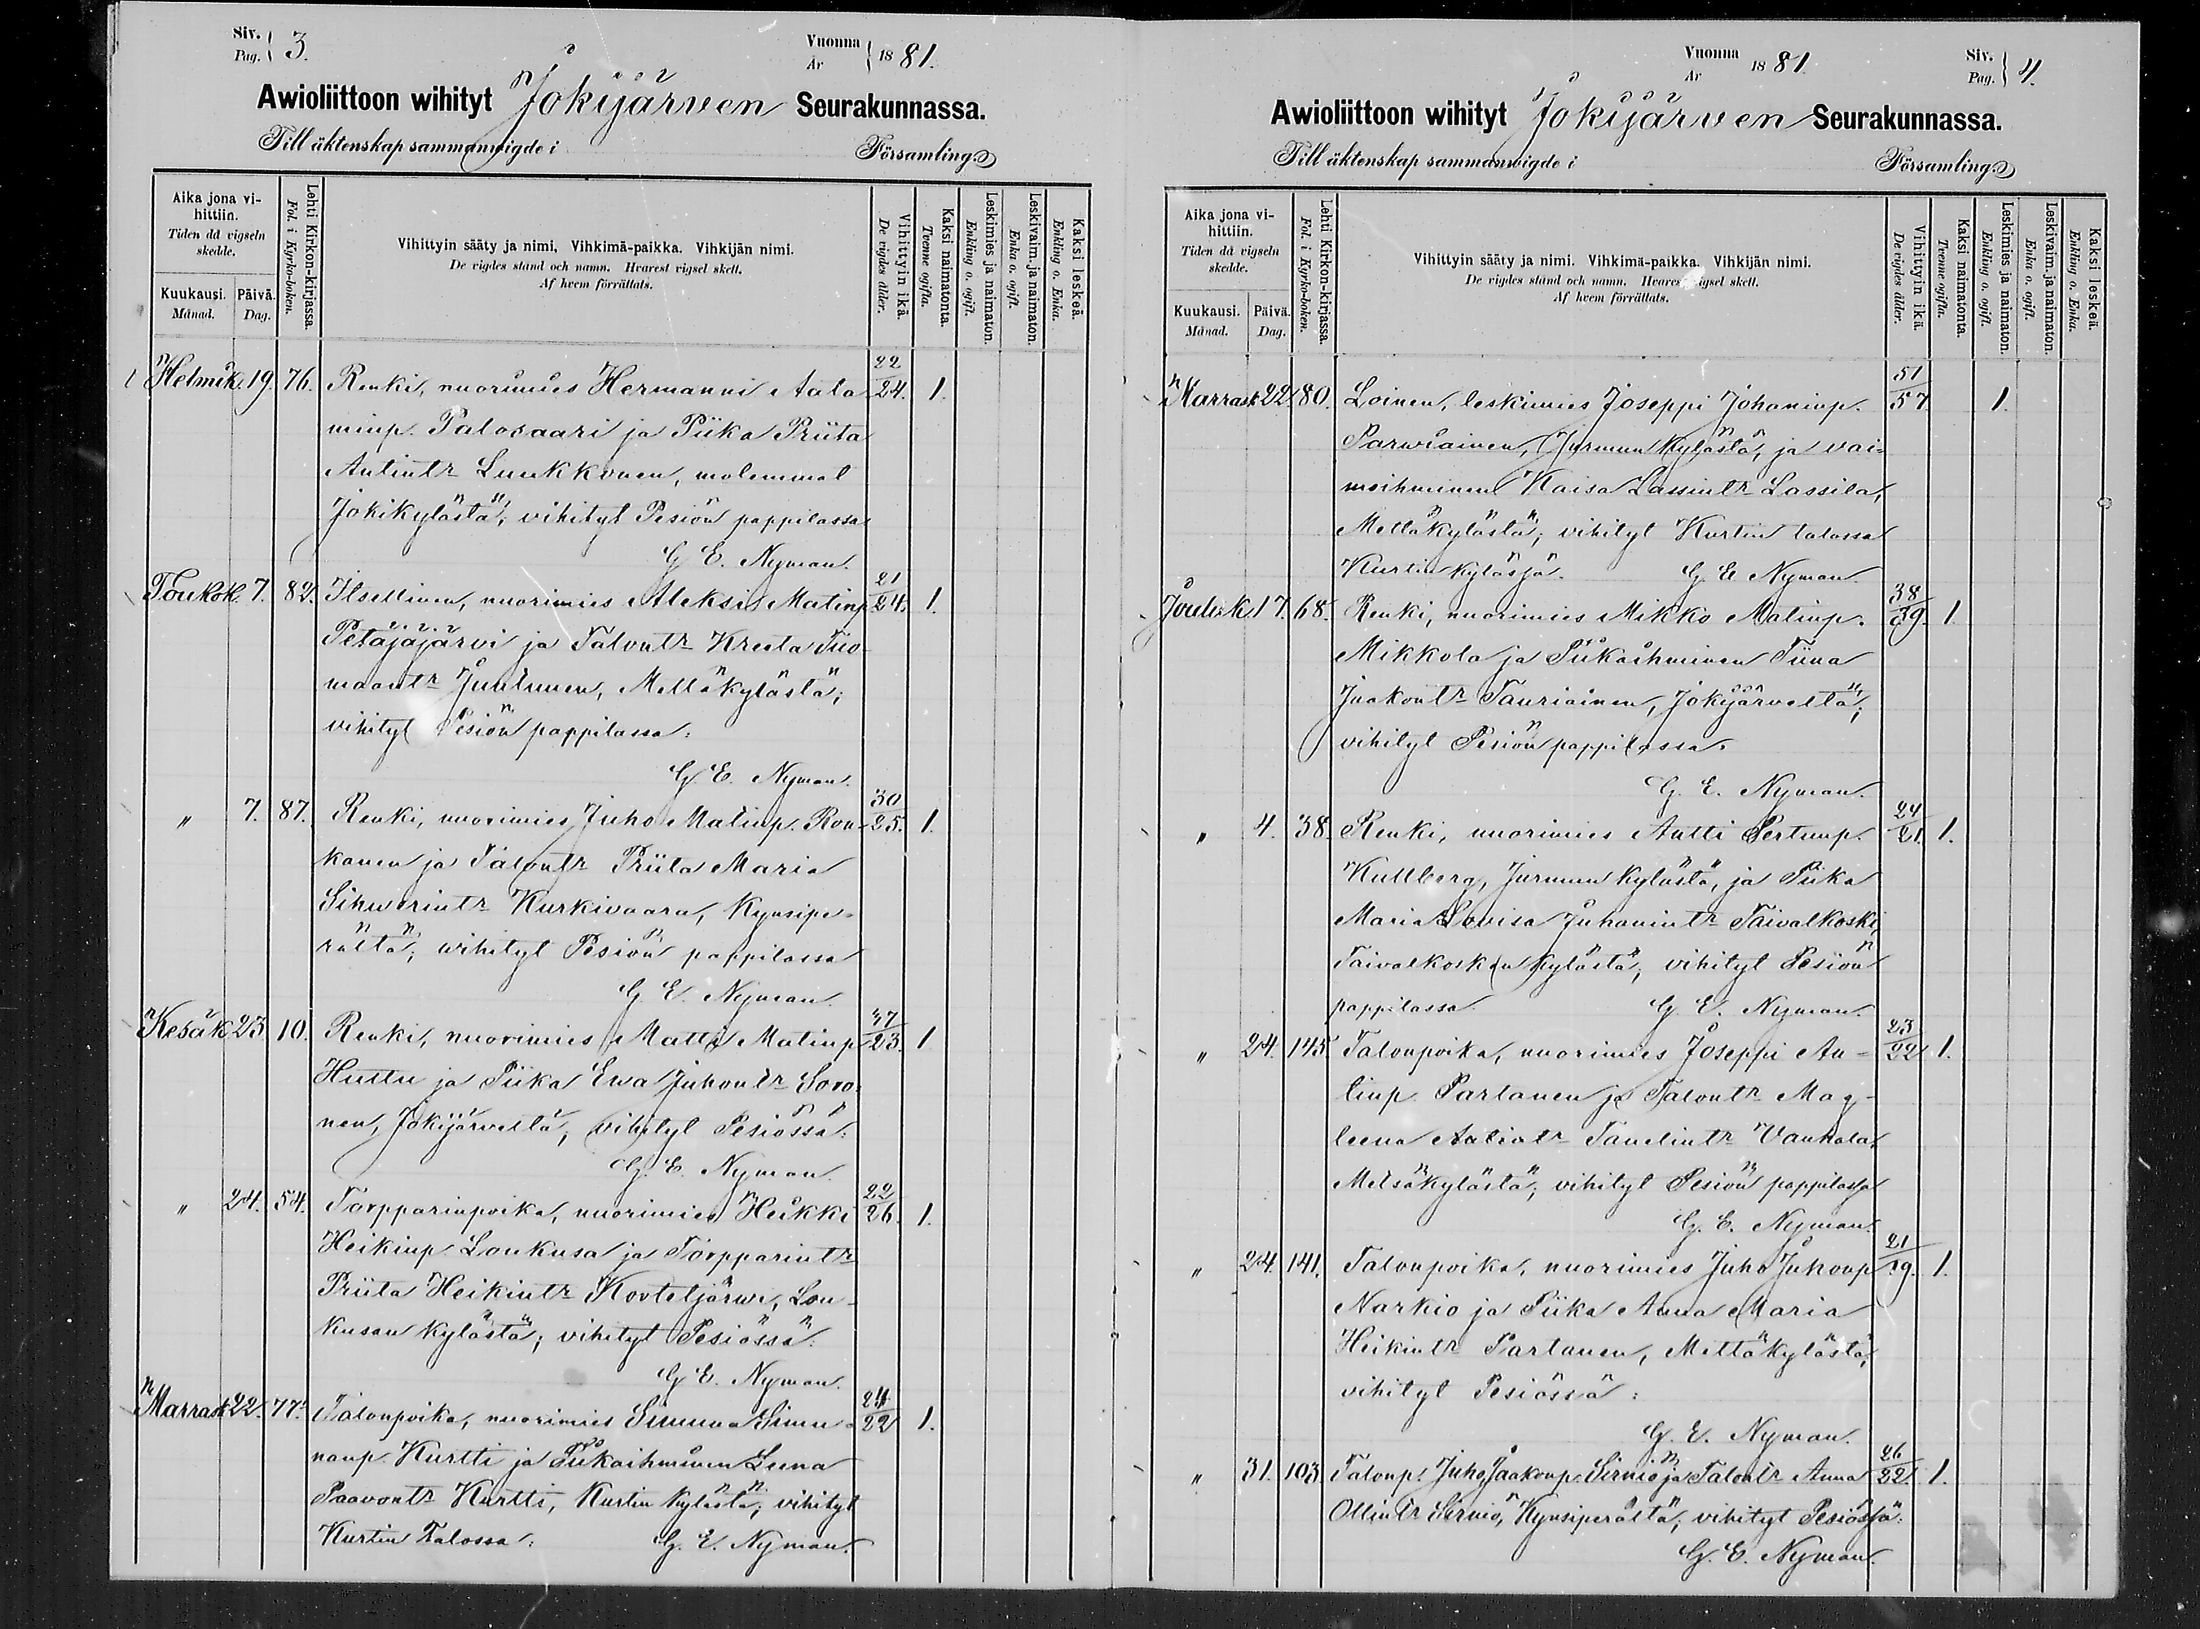 Siv. Pag. 3.
Vuonna År 1881.
Awioliittoon wihityt Jokijärven Seurakunnassa.
Till äktenskap sammanvigde i Församling.
Aika jona vihittiin.
Tiden då vigseln skedde.
Kuukausi. Månad.
Päivä. Dag.
Lehti Kirkon-kirjassa.
Fol. i Kyrko-boken.
Vihittyin sääty ja nimi, Vihkimä-paikka. Vihkijän nimi.
De vigdes stånd och namn. Hvarest vigsel skett.
Af hvem förrättats.
Vihittyin ikä.
De vigdes ålder.
Kaksi naimatonta.
Tvenne ogifta.
Leskimies ja naimaton.
Enkling o. ogift.
Leskivaim. ja naimaton.
Enka o. ogift.
Kaksi leskeä.
Enkling o. Enka.
Helmik. 19. 76. Renki, nuorimies Hermanni Aata 22/24. 1.
minp. Palosaari ja Piika Priita
Antintr Luukkonen, molemmat
Jokikylästä; vihityt Pesiön pappilassa
G. E. Nyman.
Toukok. 7. 82. Itsellinen, nuorimies Aleksis Matinp 21/24. 1.
Petäjäjärvi ja Talontr Kreeta Tuo-
maantr Juntunen, Mettäkylästä;
vihityt Pesiön pappilassa:
G. E. Nyman.
" 7. 87. Renki, nuorimies Juho Matinp. Ron- 30/25. 1.
kanen ja Talontr Priita Maria
Sihwerintr Kurkivaara, Kynsipe-
rältä; wihityt Pesiön pappilassa
G. E. Nyman.
Kesäk 23 10. Renki, nuorimies Matti Matinp 37/23. 1
Huttu ja Piika Ewa Juhontr Soro-
nen, Jokijärveltä; vihityt Pesiössä:
G. E. Nyman.
" 24. 54. Torpparinpoika, nuorimies Heikki 22/26. 1.
Heikinp Loukusa ja Torpparintr
Priita Heikintr Kovteljärwi, Lou-
kusan kylästä; vihityt Pesiössä:
G. E. Nyman.
Marrask 22. 77. Talonpoika, nuorimies Simuna Simu- 24/22 1.
nanp. Kurtti ja Piikaihminen Leena
Paavontr Kurtti, Kurtin kylästä; vihityt
Kurtin Talossa: G. E. Nyman.
Vuonna År 1881.
Siv. Pag. 4.
Awioliittoon wihityt Jokijärven Seurakunnassa.
Till äktenskap sammanvigde i Församling.
Aika jona vihittiin.
Tiden då vigseln skedde.
Kuukausi. Månad.
Päivä. Dag.
Lehti Kirkon-kirjassa.
Fol. i Kyrko-boken.
Vihittyin sääty ja nimi. Vihkimä-paikka. Vihkijän nimi.
De vigdes stånd och namn. Hvarest vigsel skett.
Af hvem förrättats.
Vihittyin ikä.
De vigdes ålder.
Kaksi naimatonta.
Tvenne ogifta.
Leskimies ja naimaton.
Enkling o. ogift.
Leskivaim. ja naimaton.
Enka o. ogift.
Kaksi leskeä.
Enkling o. Enka.
Marrask 22. 80. Loinen, leskimies Joseppi Johaninp. 51/57 1.
Parwiainen, Jurmun kylästä, ja vai-
moihminen Kaisa Lassintr Lassila,
Mettäkylästä; vihityt Kurtin talossa
Kurtin kylässä. G. E. Nyman.
Jouluk 17. 68. Renki, nuorimies Mikko Matinp. 38/39. 1
Mikkola ja Piikaihminen Tiina
Jaakontr Tauriainen, Jokijärveltä;
vihityt Pesiön pappilassa.
G. E. Nyman.
" 4. 38. Renki, nuorimies Antti Pertunp. 24/21. 1.
Kullberg, Jurmun kylästä, ja Piika
Maria Lovisa Juhanintr Taivalkoski,
Taivalkosken kylästä; vihityt Pesiön
pappilassa. G. E. Nyman.
" 24. 145. Talonpoika, nuorimies Joseppi An- 23/22 1.
tinp. Partanen ja Talontr Mag-
leena Tanelintr Vanhala,
Metsäkylästä; vihityt Pesiön pappilassa
G. E. Nyman.
" 24. 141. Talonpoika, nuorimies Juho Juhonp 21/19. 1.
Narkio ja Piika Anna Maria
Heikintr Partanen, Mettäkylästä,
vihityt Pesiössä:
G. E. Nyman.
" 31. 103. Talonp. Juho Jaakonp. Sirniö ja Talontr Anna 26/22 1.
Ollintr Sirniö, Kynsiperältä; vihityt Pesiössä:
G. E. Nyman.